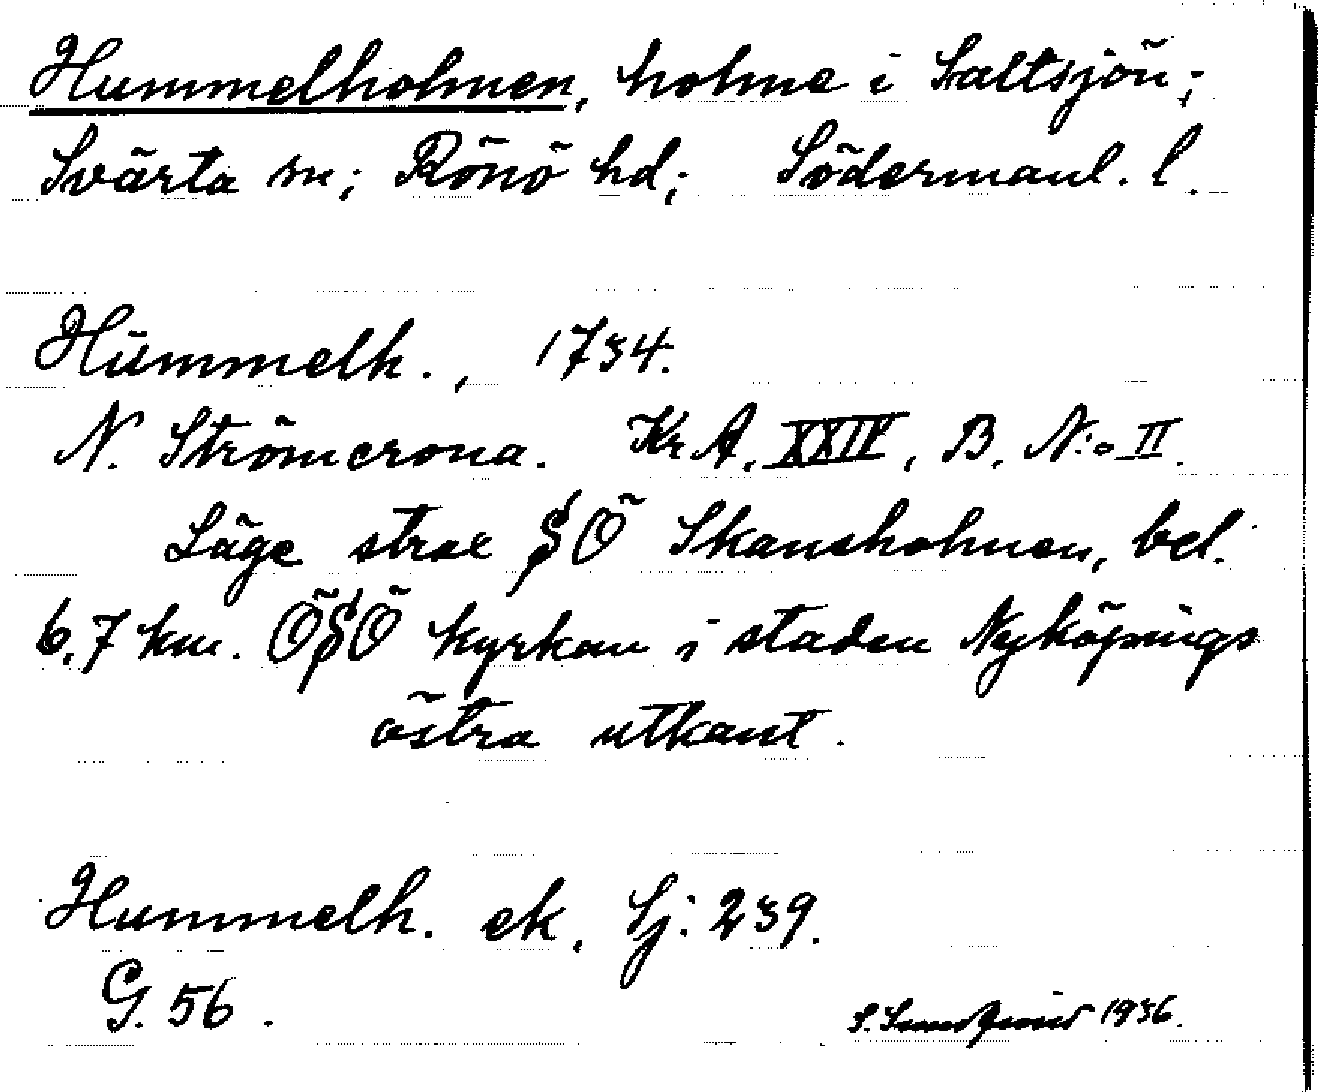 Hummelholmen, holme i Saltsjön;
Svärta sn; Rönö hd; Södermanl. l.
Hümmelh., 1734.
N. Strömcrona. Kr A, XXIV, B, N:o II.
Läge strax SÖ Skansholmen, bel.
6,7 km. ÖSÖ kyrkan i staden Nyköpings
östra utkant.
Hummelh. ek. Sj: 239.
G. 56.
S. 1936.